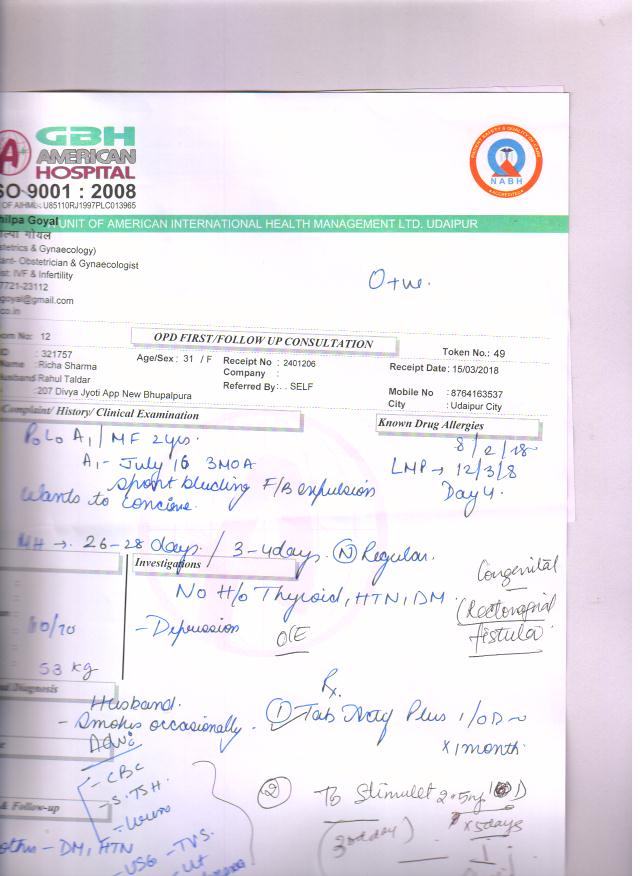 GBH
AMERICAN
HOSPITAL
SO 9001 : 2008
OF AIHML- U85110RJ1997PLC013965
PATIENT SAFETY & QUALITY OF CARE
NABH
ACCREDITED
hilpa Goyal
UNIT OF AMERICAN INTERNATIONAL HEALTH MANAGEMENT LTD. UDAIPUR
ल्पा गोयल
stetrics & Gynaecology)
ant- Obstetrician & Gynaecologist
ist: IVF & Infertility
7721-23112
goyal@gmail.com
co.in
O+ve.
om No: 12
OPD FIRST/FOLLOW UP CONSULTATION
Token No.: 49
ID : 321757
Age/Sex : 31 / F
Receipt No : 2401206
Receipt Date: 15/03/2018
Name : Richa Sharma
Company :
Husband Rahul Taldar
Referred By: . . SELF
Mobile No : 8764163537
: 207 Divya Jyoti App New Bhupalpura
City : Udaipur City
Complaint/ History/ Clinical Examination
Known Drug Allergies
P0L0A1 / MF 2yrs.
8/2/18
A1- July 16 3MOA
LMP → 12/3/8
spont bleeding F/B expulsion
Day 4.
wants to concieve.
MH → 26-28 days / 3-4 days. (N) Regular.
Investigations
Congenital
No H/o Thyroid, HTN, DM.
fistula
- Depression
O/E
/70
53 kg
nd Diagnosis
Rx.
Husband.
- Smokes occasionally.
① Tab Plus 1/OD
x 1 month.
Adv:
- CBC
- S. TSH.
- Urine
② Tb 2.5mg
x 5days
(3rd day)
& Follow-up
- DM, HTN
- USG - TVS.